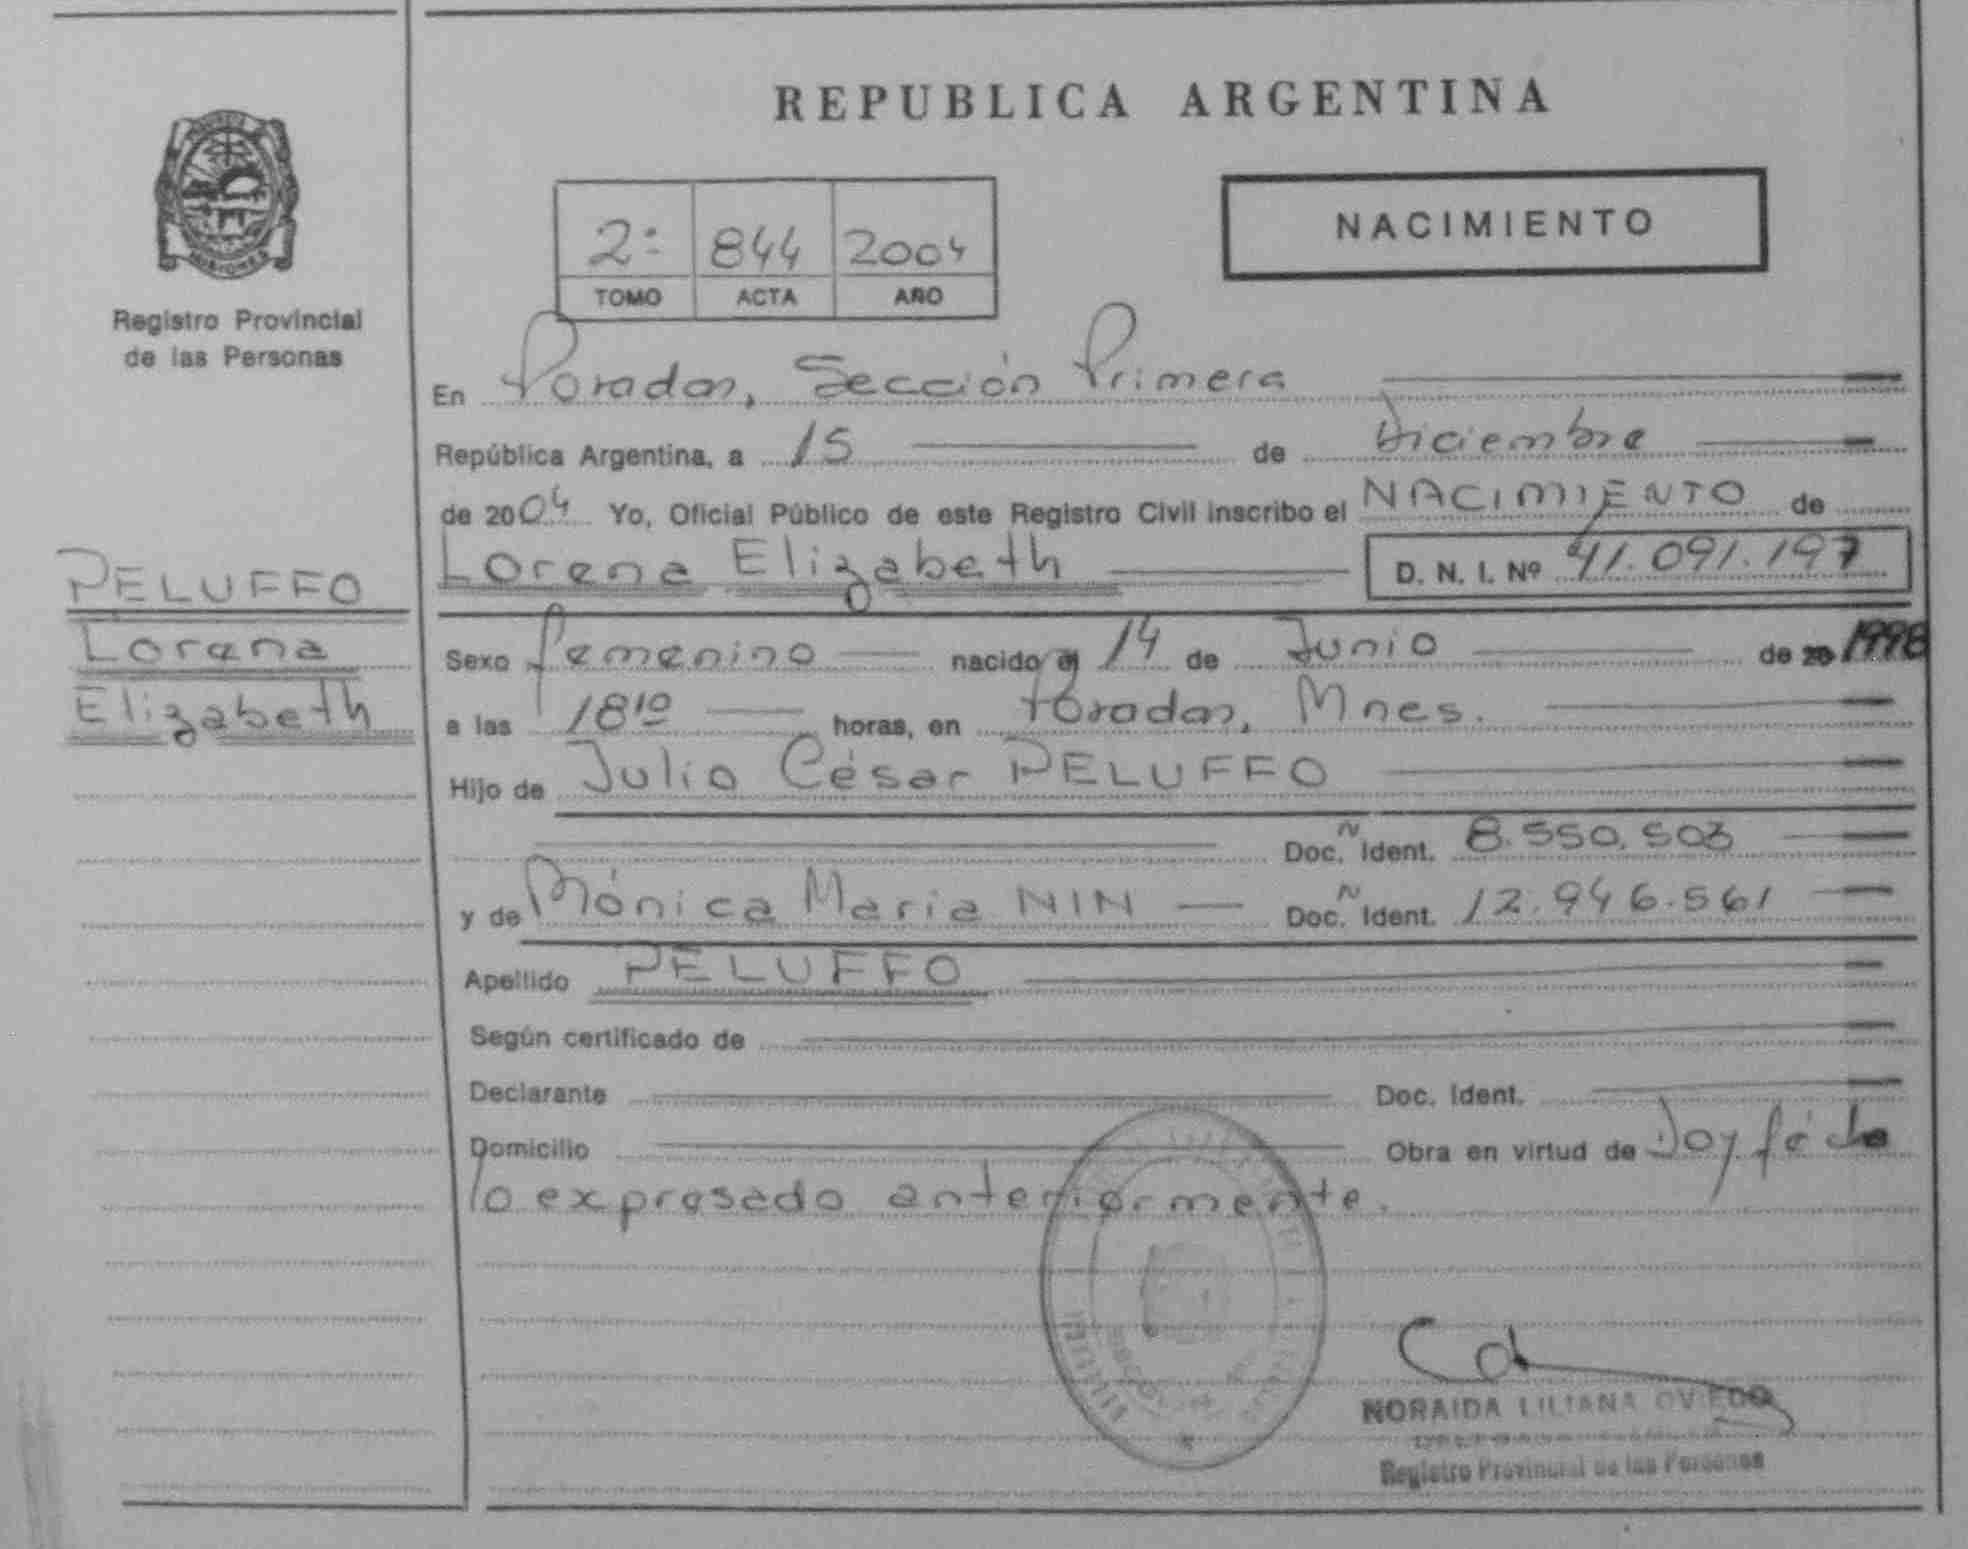 REPUBLICA ARGENTINA
MISIONES
Registro Provincial
de las Personas
2º 844 2004
TOMO ACTA AÑO
NACIMIENTO
En Posadas, Sección Primera
República Argentina, a 15 de Diciembre
de 2004 Yo, Oficial Público de este Registro Civil inscribo el NACIMIENTO de
Lorena Elizabeth D. N. I. Nº 41.091.197
PELUFFO
Lorena
Elizabeth
Sexo femenino nacido el 14 de Junio de 20 1998
a las 18¹⁰ horas, en Posadas, Mnes.
Hijo de Julio César PELUFFO
Doc. Ñ Ident. 8.550.503
y de Mónica Maria NIN Doc. Ñ Ident. 12.946.561
Apellido PELUFFO
Según certificado de
Declarante Doc. Ident.
Domicilio Obra en virtud de Doy fé de
lo expresado anteriormente.
NORAIDA LILIANA OVIEDO
Registro Provincial de las Personas